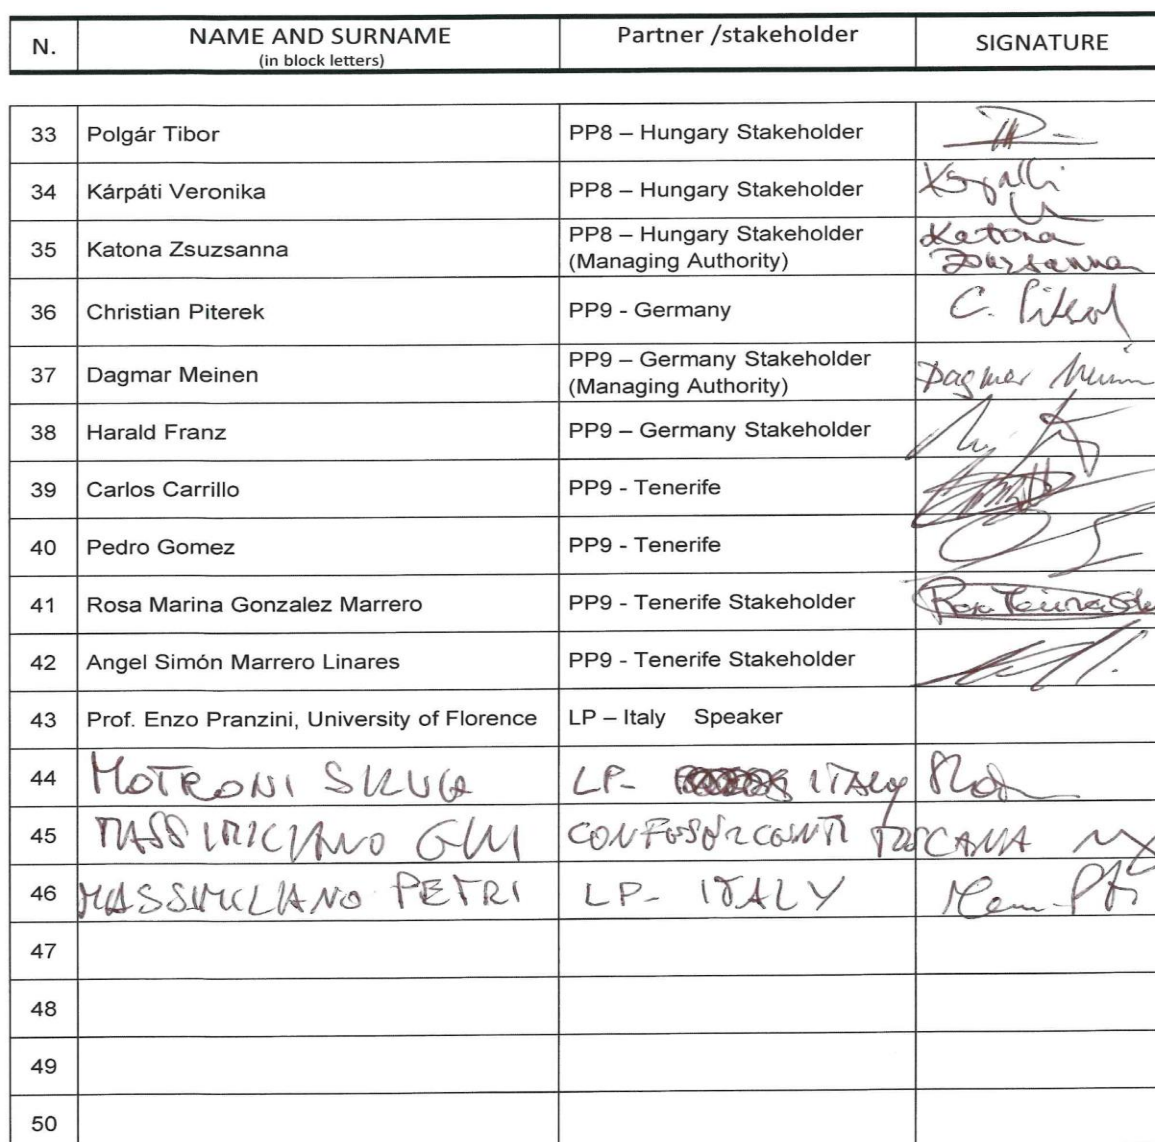 N. NAME AND SURNAME Partner /stakeholder SIGNATURE
(in block letters)
33 Polgár Tibor PP8 – Hungary Stakeholder
34 Kárpáti Veronika PP8 – Hungary Stakeholder
35 Katona Zsuzsanna PP8 – Hungary Stakeholder Katona
(Managing Authority) Zsuzsanna
36 Christian Piterek PP9 - Germany C.
37 Dagmar Meinen PP9 – Germany Stakeholder Dagmar
(Managing Authority)
38 Harald Franz PP9 – Germany Stakeholder
39 Carlos Carrillo PP9 - Tenerife
40 Pedro Gomez PP9 - Tenerife
41 Rosa Marina Gonzalez Marrero PP9 - Tenerife Stakeholder Rosa
42 Angel Simón Marrero Linares PP9 - Tenerife Stakeholder
43 Prof. Enzo Pranzini, University of Florence LP – Italy Speaker
44 MOTRONI LP- ITALY
45 MASSIMILIANO TOSCANA
46 MASSIMILIANO PETRI LP- ITALY
47
48
49
50